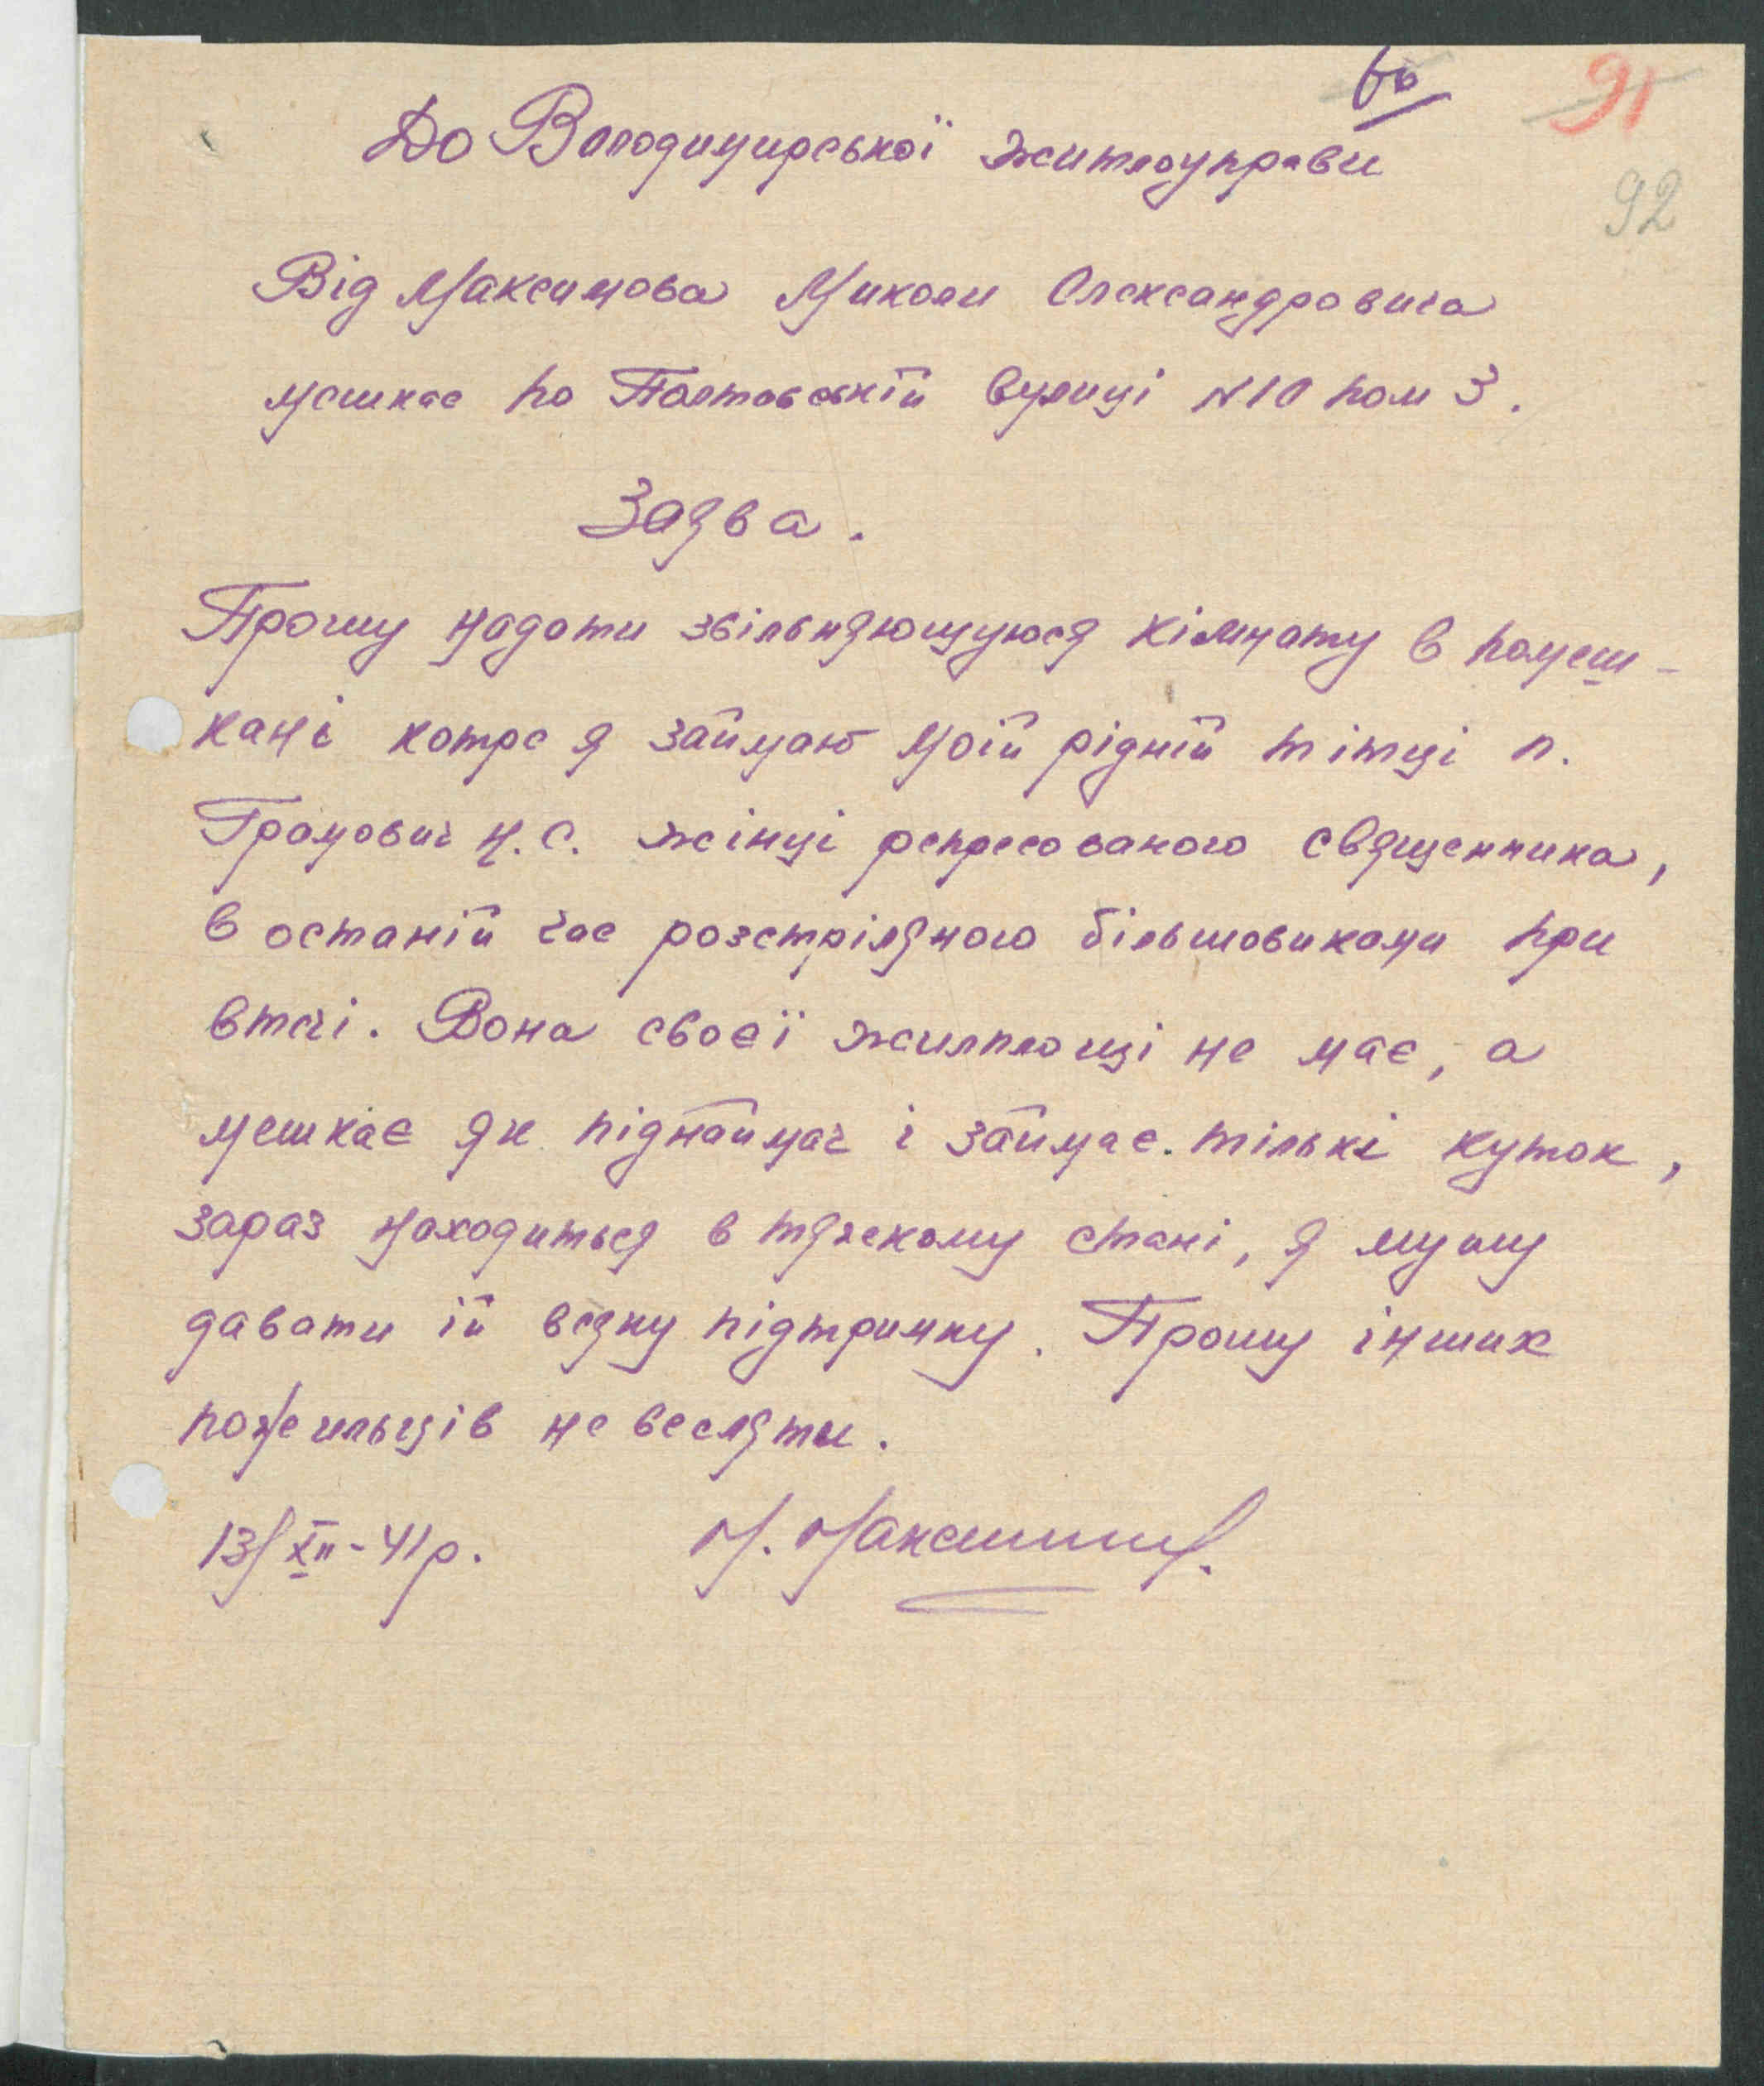 91
92
До Володимирської житлоуправи
Від Максимова Миколи Олександровича
мешкає по Полтавській вулиці №10 пом 3.
Заява.
Прошу надати звільняющуюся кімнату в помеш-
кані котре я займаю моій рідній тітці п.
Громович Н.С. жінці репресованого священника,
в останій час розстріляного більшовиками при
втечі. Вона своєї жилплощі не має, а
мешкає як піднаймач і займає тількі куток,
зараз находиться в тяжкому стані, я мушу
давати ій всяку підтримку. Прошу інших
пожильців не вселяти.
13/XII-41р. М. Максимов.